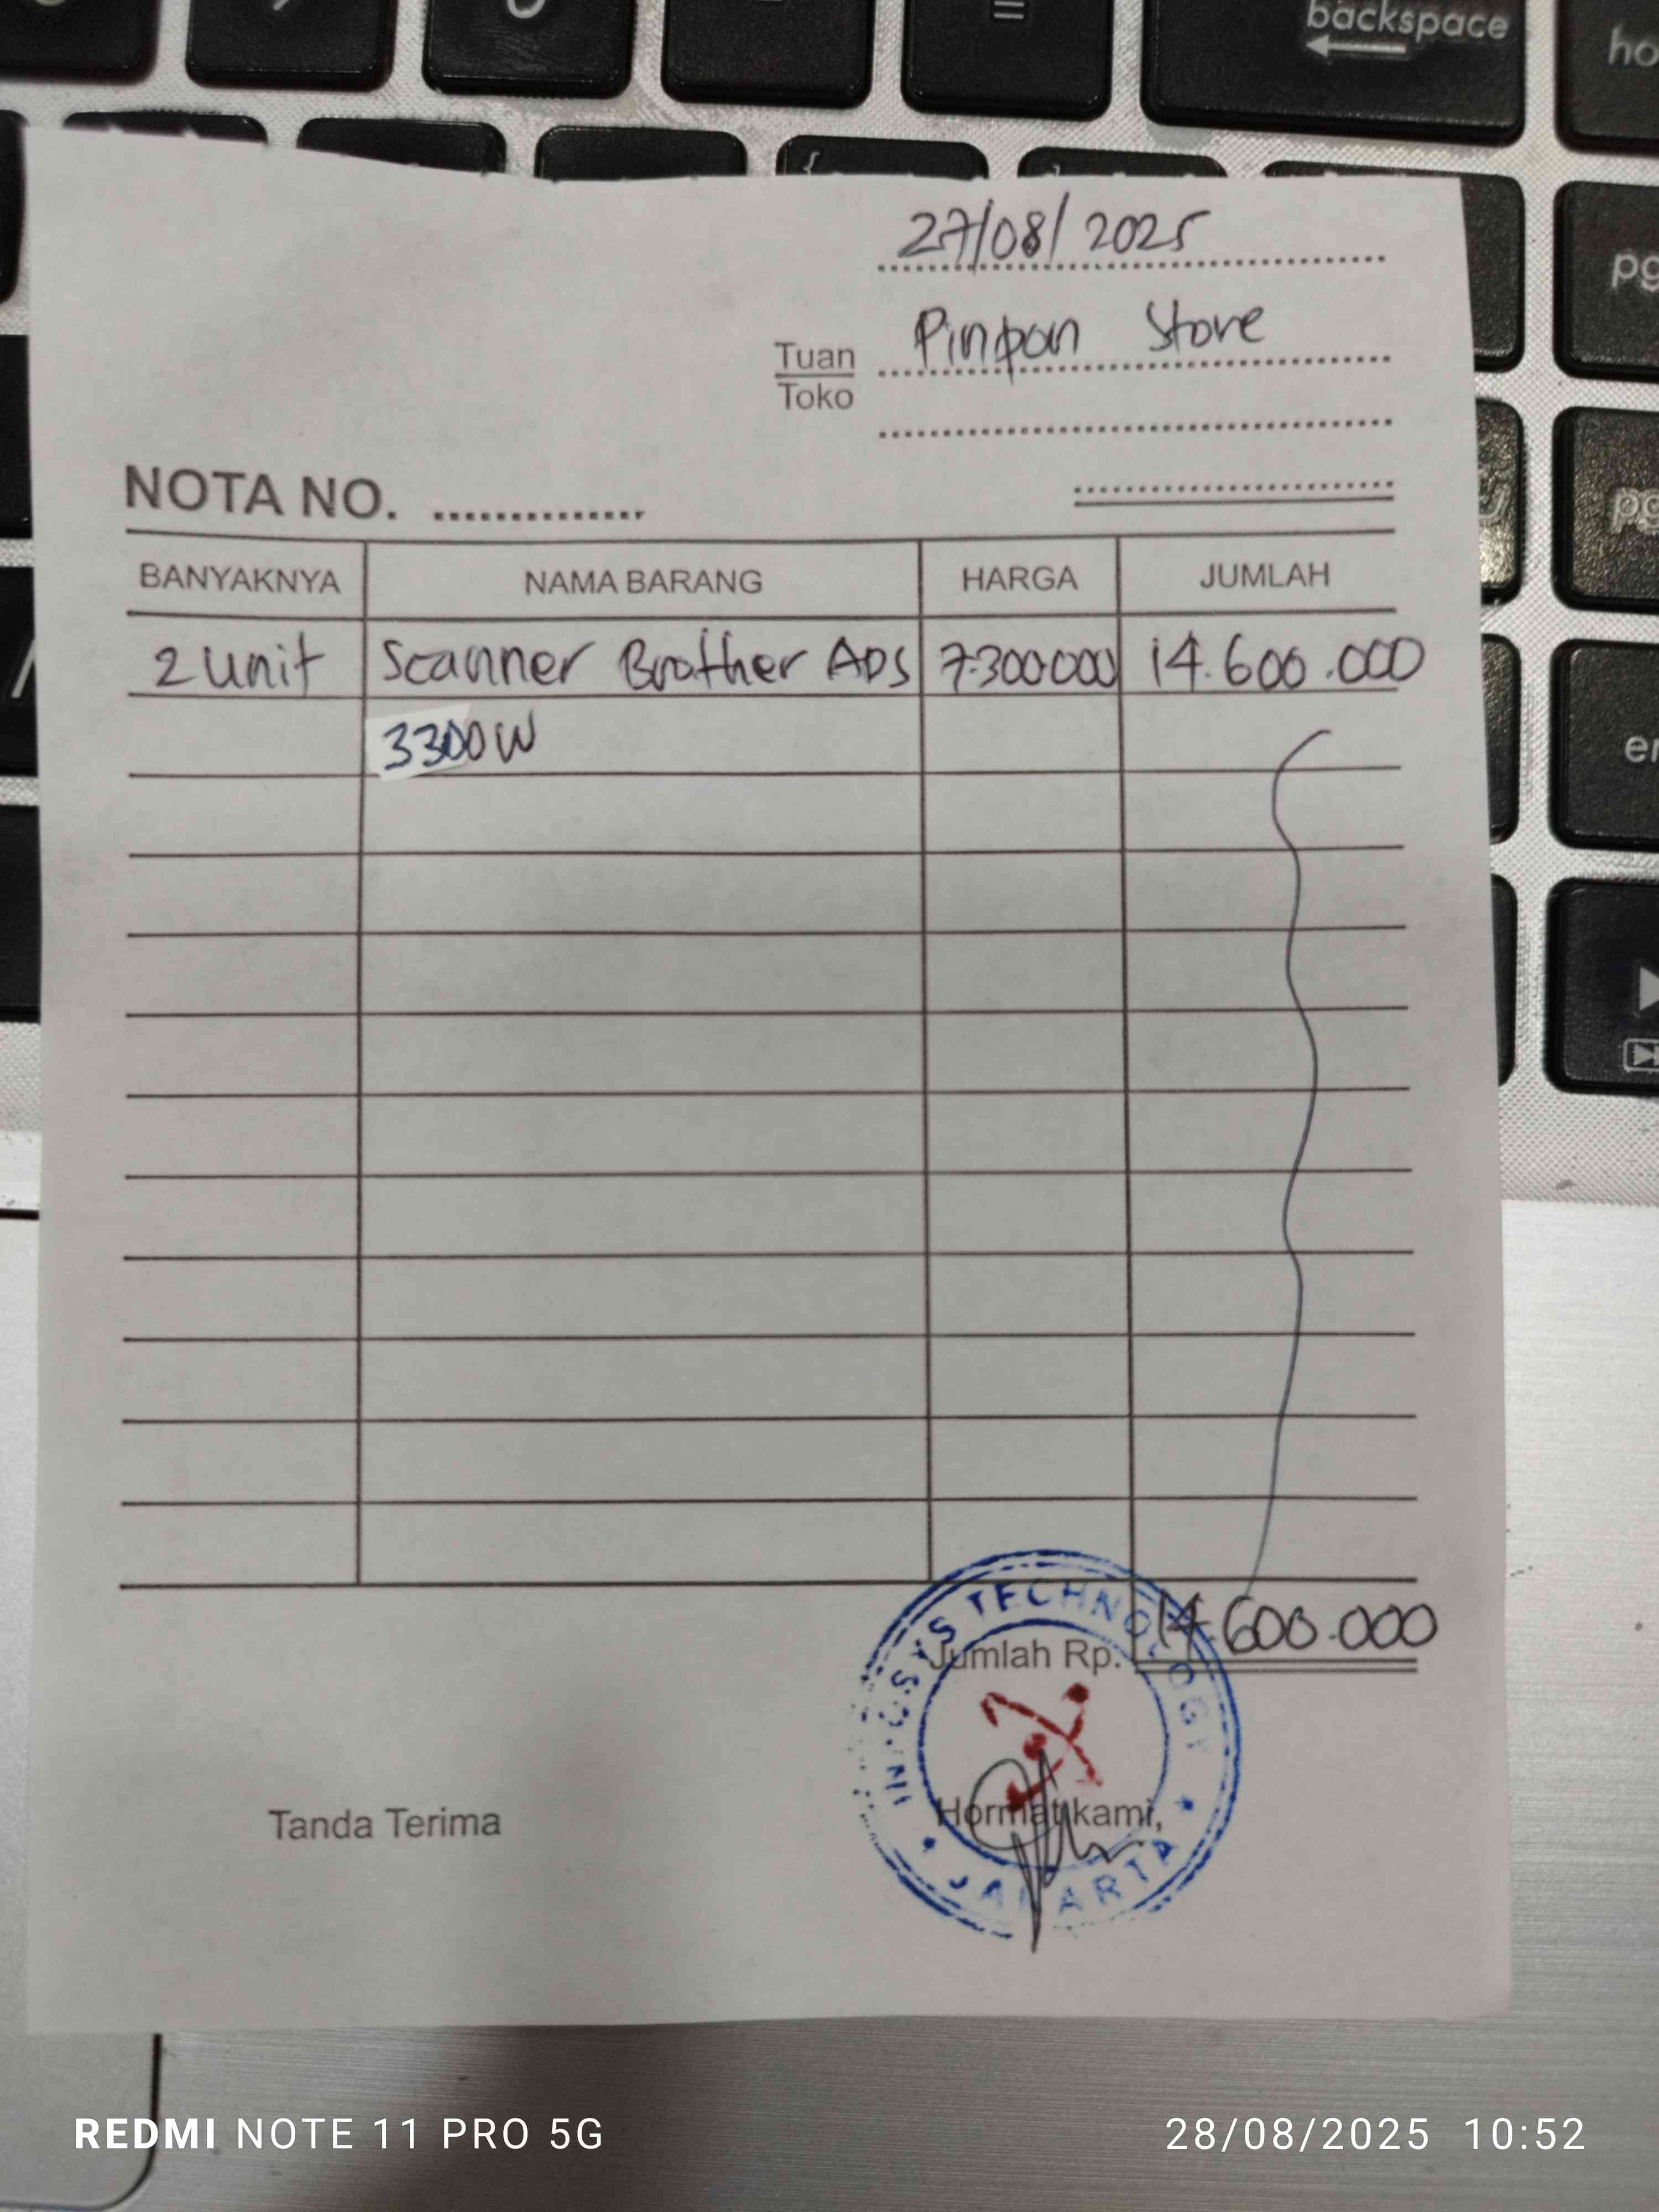 backspace
ho
pg
pg
27/08/2025
Pinpon Store
Tuan
Toko
NOTA NO.
BANYAKNYA NAMA BARANG HARGA JUMLAH
2 unit Scanner Brother ADS 7.300.000 14.600.000
3300W
14.600.000
Jumlah Rp.
TECHNOLOGY
JAKARTA
Tanda Terima
Hormat kami,
REDMI NOTE 11 PRO 5G
28/08/2025 10:52